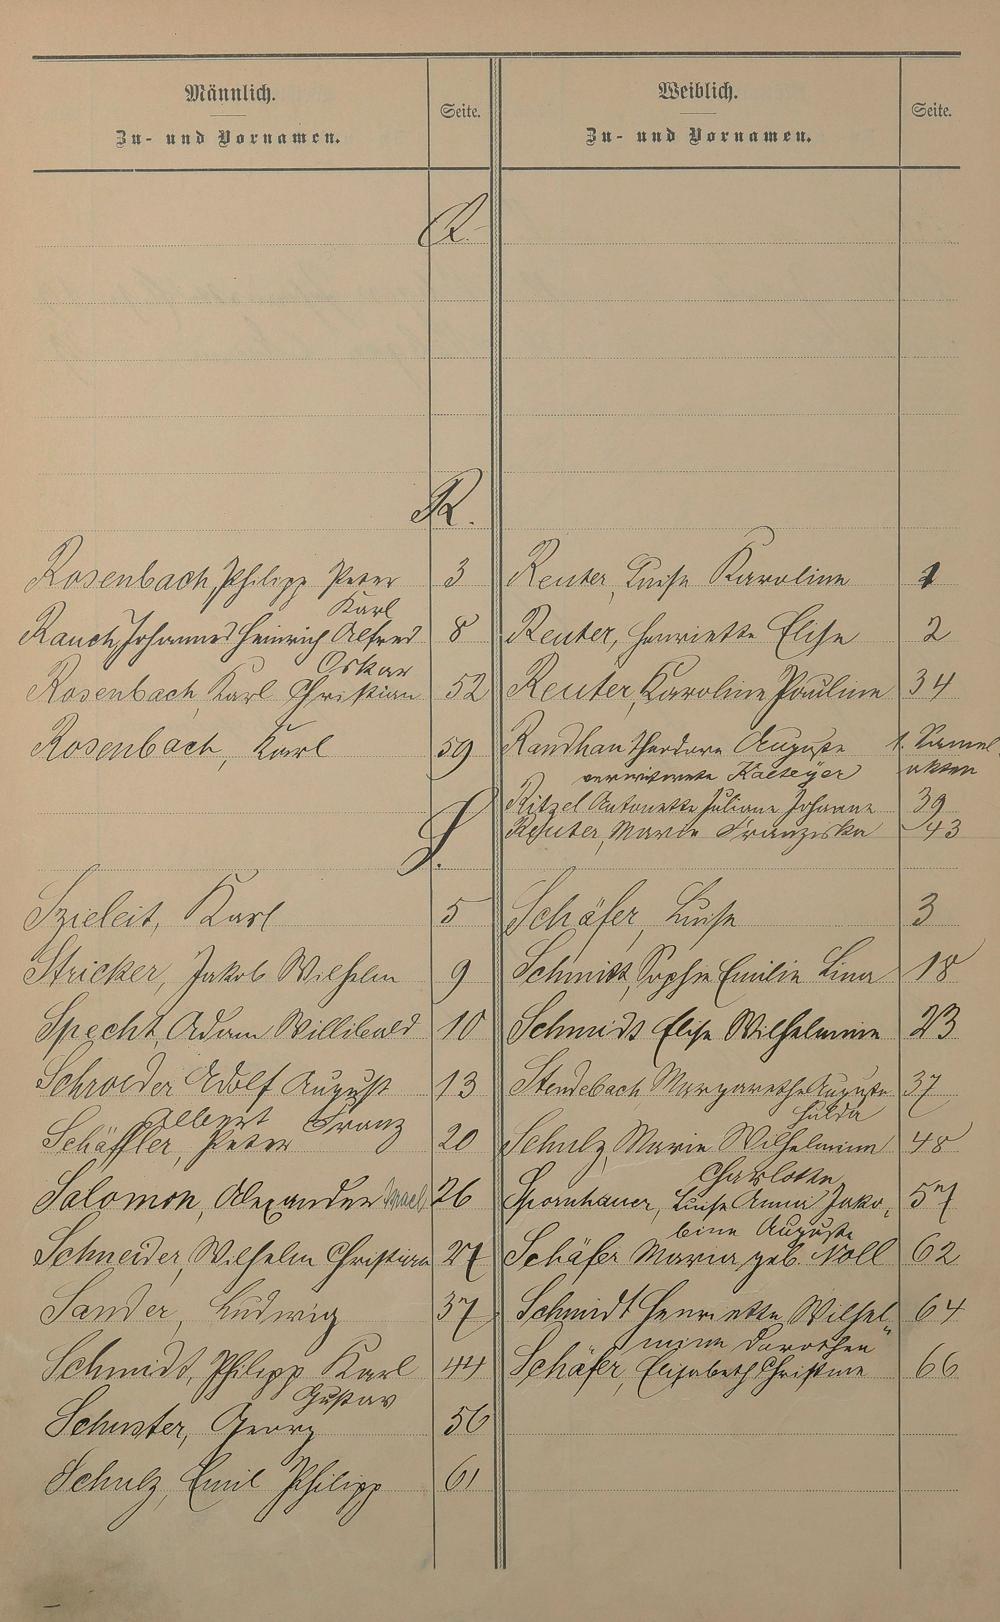 Männlich.
Zu- und Vornamen.
Seite.
Weiblich.
Zu- und Vornamen.
Seite.
Q.
R.
Rosenbach, Philipp Peter 3
Karl
Rauch, Johannes Heinrich Alfred 8
Oskar
Rosenbach, Karl Christian 52
Rosenbach, Karl 59
Reuter, Luise Karoline 1
Reuter, Henriette Elise 2
Reuter, Karoline Pauline 34
Randhan Theodore Auguste
verwitwete Kalteyer
akten
Ritzel Antonette Juliane Johanne 39
Reuter, Marie Franziska 43
S.
Szieleit, Karl 5
Stricker, Jakob Wilhelm 9
Specht, Adam Willibald 10
Schroeder Adolf August 13
Albert Franz
Schäffler, Peter 20
Salomon, Alexander Israel, 26
Schneider, Wilhelm Christian 27
Sander, Ludwig 37
Schmidt, Philipp Karl 44
Gustav
Schuster, Georg 56
Schulz, Emil Philipp 61
Schäfer, Luise 3
Schmitt, Sophie Emilie Lina 18
Schmidt Elise Wilhelmine 23
Stendebach Margarethe Auguste 37
Hulda
Schulz, Marie Wilhelmine 48
Charlotte
Spornhauer, Luise Anna Jako- 57
bine Auguste
Schäfer Maria geb. Noll 62
Schmidt Henriette Wilhel- 64
mine Dorothea
Schäfer, Elisabeth Christine 66